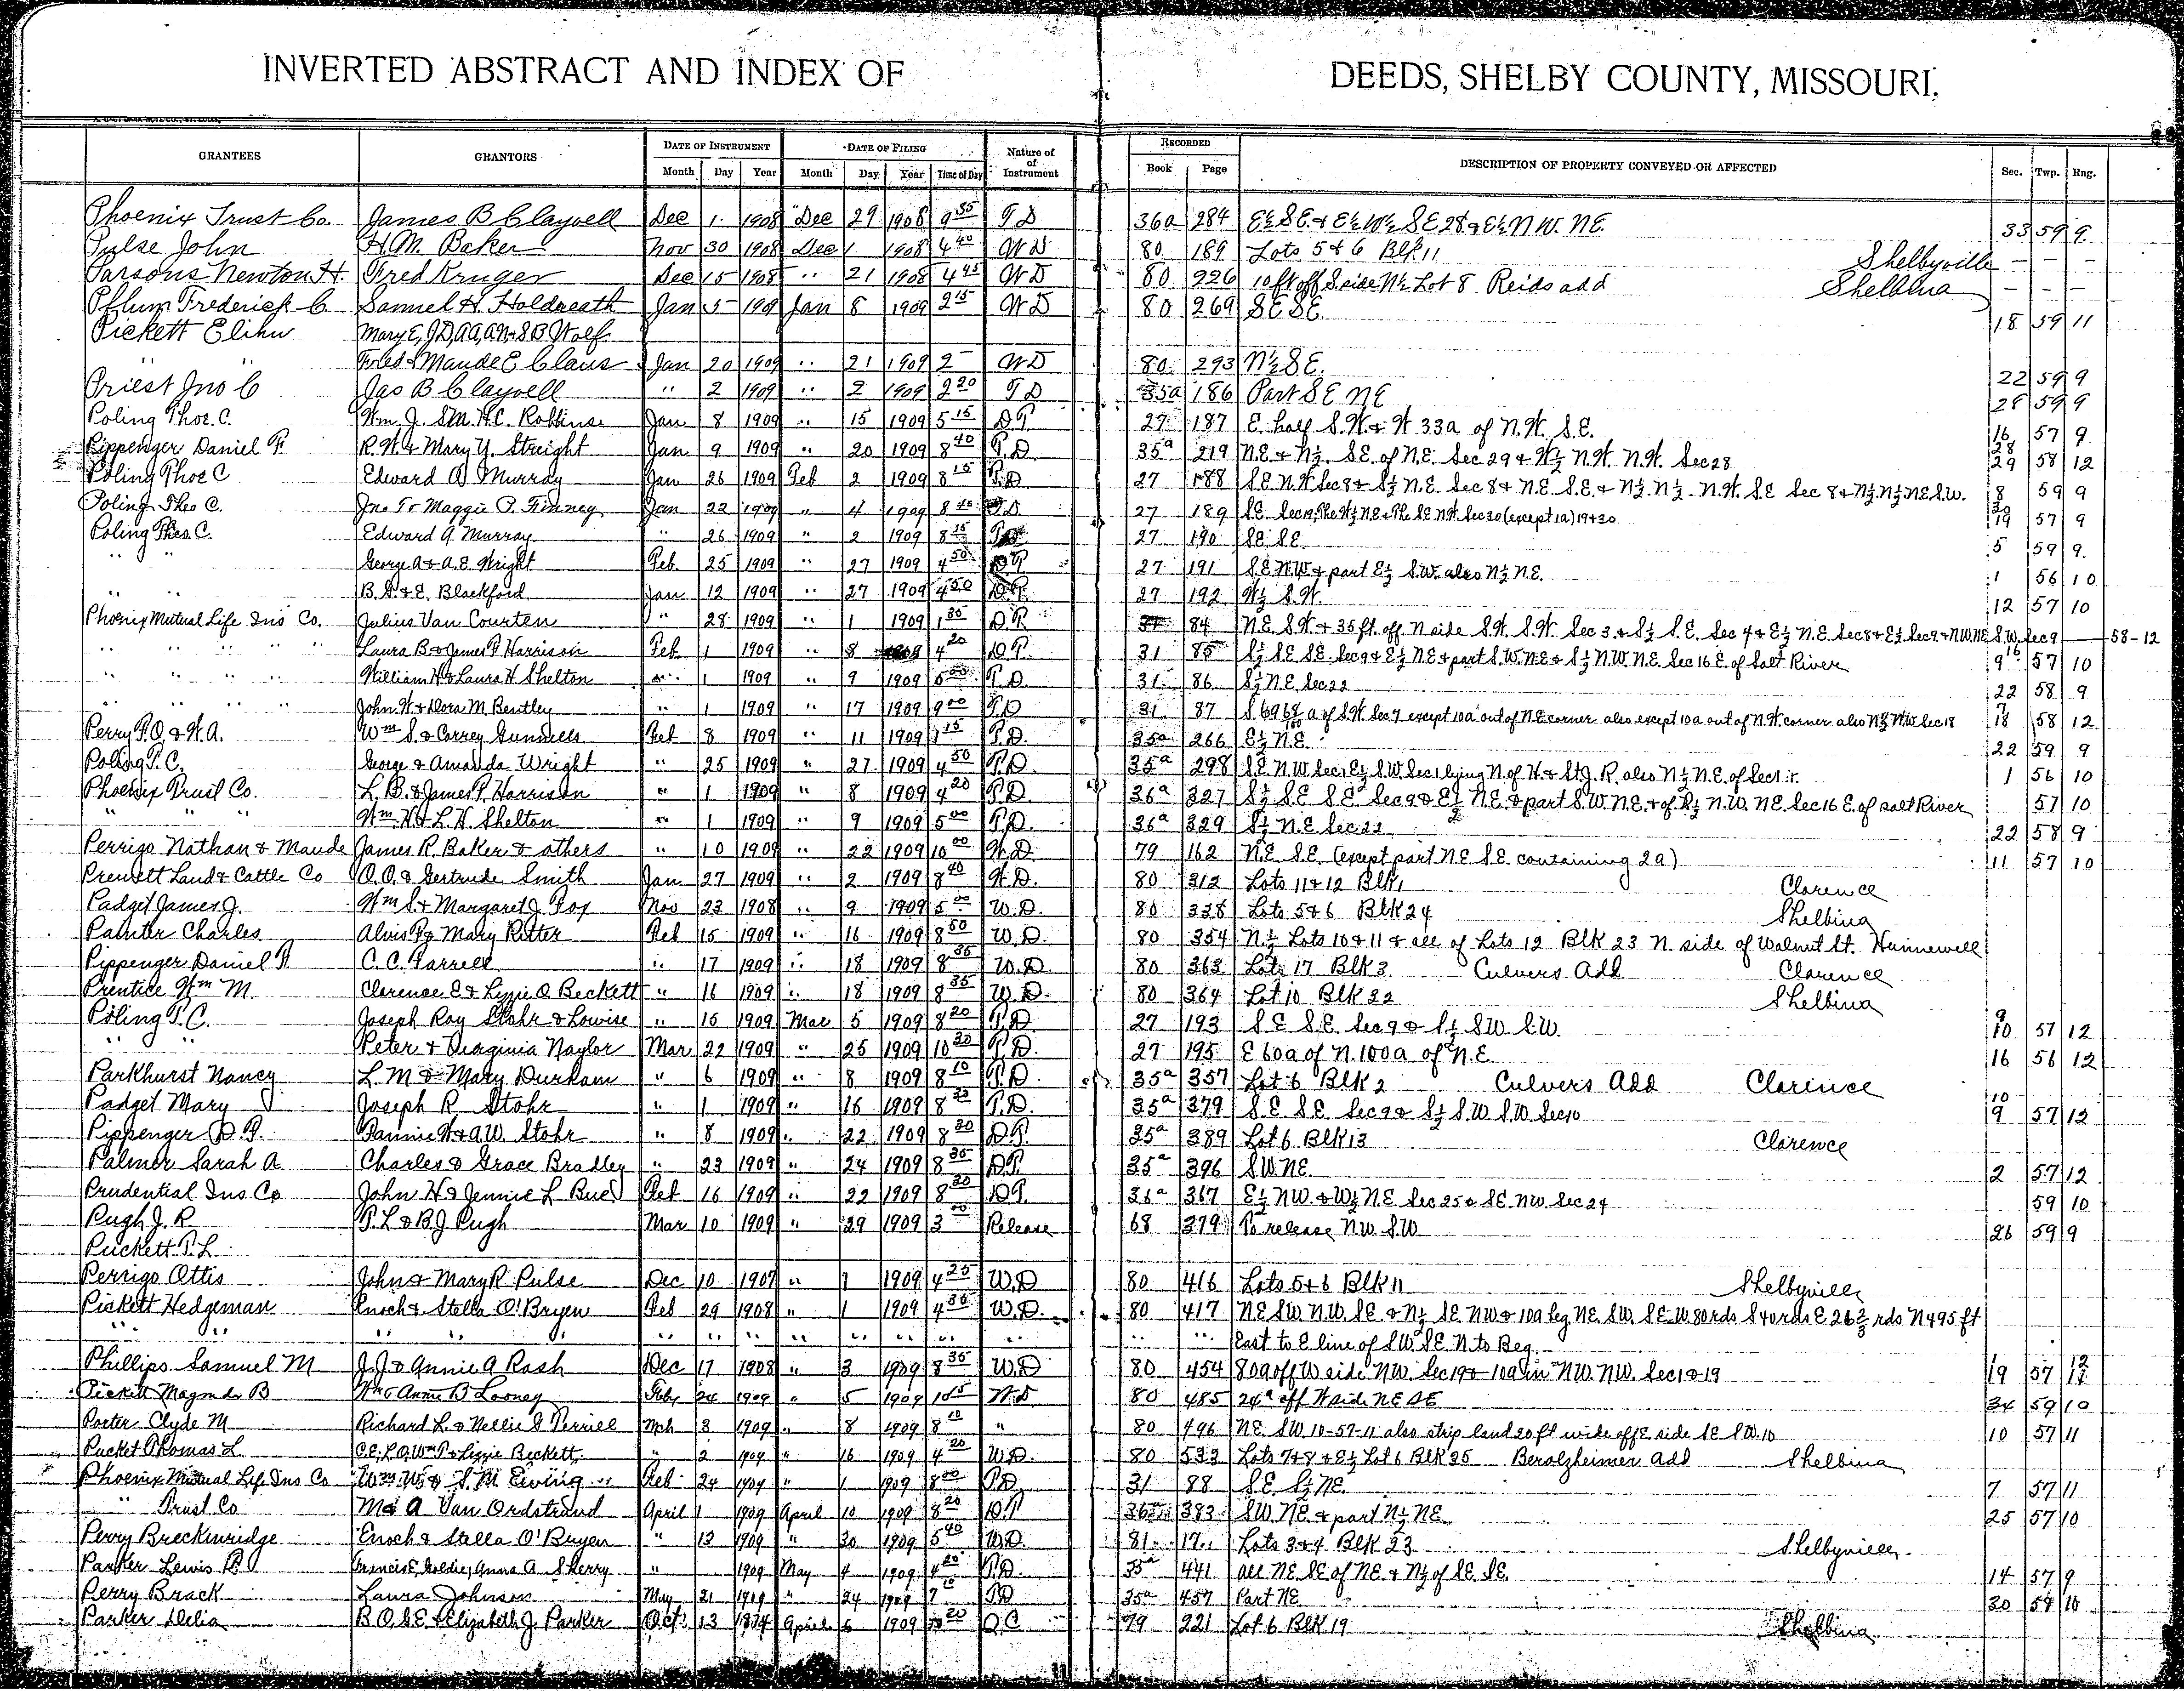 INVERTED ABSTRACT AND INDEX OF DEEDS, SHELBY COUNTY, MISSOURI.
GRANTEES GRANTORS DATE OF INSTRUMENT DATE OF FILING Nature of of Instrument RECORDED DESCRIPTION OF PROPERTY CONVEYED OR AFFECTED Sec. Twp. Rng.
Month Day Year Month Day Year Time of Day Book Page
Phoenix Trust Co. James B Clayvell Dec 1 1908 Dec 29 1908 9 35 T D 36a 284 E½ S.E. & E½ W½ SE 28 & E½ N W. N E. 33 59 9
Pulse John H.M. Baker Nov 30 1908 Dec 1 1908 4 40 W D 80 189 Lots 5 & 6 Blk 11 Shelbyville — — —
Parsons Newton H. Fred Kruger Dec 15 1908 " 21 1908 4 45 W D 80 226 10 ft off S side N½ Lot 8 Reids add Shelbina — — —
Pflum Frederick C. Samuel H. Holdreath Jan 5 1909 Jan 8 1909 2 15 W D 80 269 S E S E. 18 59 11
Pickett Elihu Mary E, J.D, A.A, A.N & S B Wolf
" " Fred & Maude E Claus Jan 20 1909 " 21 1909 2 – W D 80 293 N½ S E. 22 59 9
Priest Jno C Jas B Clayvell " 2 1909 " 2 1909 2 20 T D 35a 186 Part S E N E 28 59 9
Poling Thos. C. Wm. J. S.M. H.C. Robbins Jan 8 1909 " 15 1909 5 15 D T 27 187 E. half S.W. & W 33a of N.W. S.E. 16 57 9
Pippenger Daniel F. R.W. & Mary Y. Straight Jan 9 1909 " 20 1909 8 40 T.D. 35a 219 N.E. & N½ S.E. of N.E. Sec 29 & W½ N.W. N.W. Sec 28 28 29 58 12
Poling Thos C Edward A Murray Jan 26 1909 Feb 2 1909 8 15 T.D. 27 188 S.E. N.W Sec 8 & S½ N.E. Sec 8 & N.E. S.E. & N½ N½ N.W. S.E Sec 8 & N½ N½ N.E S.W. 8 59 9
Poling Theo C. Jno T & Maggie P. Finney Jan 22 1909 " 4 1909 8 T D 27 189 S.E. Sec 19, The W½ N E & The S.E. N.W Sec 30 (except 1a) 19 & 30 30 19 57 9
Poling Theo. C. Edward A. Murray " 26 1909 " 2 1909 8 15 27 190 S.E. S.E. 5 59 9.
" " George A & A.E. Wright Feb 25 1909 " 27 1909 4 50 D T 27 191 S.E. N W & part E½ S.W. also N½ N.E. 1 56 10
" " B.S. & E. Blackford Jan 12 1909 " 27 1909 4 50 D T 27 192 W½ S.W. 12 57 10
Phoenix Mutual Life Ins Co. Julius Van Courten " 28 1909 " 1 1909 1 35 D.T. 31 84 N.E. S.W. & 35 ft. off N side S.W. S.W. Sec 3 & S½ S.E. Sec 4 & E½ N.E. Sec 8 & E½ Sec 9 & N.W. N.E S.W. Sec 9 58-12
" " " " Laura B & James P Harrison Feb 1 1909 " 8 4 20 D T. 31 85 S½ S.E S.E. Sec 9 & E½ N.E & part S.W. N.E & S½ N.W. N.E. Sec 16 E. of Salt River 16 9 57 10
" " " " William H & Laura H Shelton " 1 1909 " 9 1909 5 00 T.D. 31 86 S½ N.E. Sec 22 22 58 9
" " " " John W & Dora M. Bentley " 1 1909 " 17 1909 9 00 T.D 31 87 S 69 68/100 a of S.W Sec 7 except 10a out of N.E corner also except 10a out of N.W. corner also N½ N.W Sec 18 7 18 58 12
Perry P.O. & H.A. Wm S. & Correy Gunnells Feb 8 1909 " 11 1909 1 15 T.D. 35a 266 E½ N.E 22 59 9
Poling T.C. George & Amanda Wright " 25 1909 " 27 1909 4 50 T.D. 35a 298 S.E. N.W Sec 1, E½ S.W Sec 1 lying N. of H. & St. J. R. also N½ N.E. of Sec 1 1 56 10
Phoenix Trust Co. L.B. & James P. Harrison " 1 1909 " 8 1909 4 20 T.D. 36a 327 S½ S.E S.E Sec 9 & E½ N.E. & part S.W N.E. & of S½ N.W. NE Sec 16 E. of Salt River 57 10
" " " Wm. H & L.H. Shelton " 1 1909 " 9 1909 5 00 T.D. 36a 329 S½ N.E Sec 22 22 58 9
Perrigo Nathan & Maude James R. Baker & others " 10 1909 " 22 1909 10 00 W.D. 79 162 N.E. S.E. (except part N.E S.E. containing 2a) 11 57 10
Prewett Land & Cattle Co O.O. & Gertrude Smith Jan 27 1909 " 2 1909 8 40 W.D. 80 312 Lots 11 & 12 Blk 1 Clarence
Padget James J. Wm S. & Margaret J. Fox Nov 23 1908 " 9 1909 5 00 W.D. 80 338 Lots 5 & 6 Blk 24 Shelbina
Painter Charles Alvis P & Mary Ritter Feb 15 1909 " 16 1909 8 50 W.D. 80 354 N.½ Lots 10 & 11 & all of Lots 12 Blk 23 N. side of Walnut St. Hunnewell
Pippenger Daniel F. C.C. Farrell " 17 1909 " 18 1909 8 35 W.D. 80 363 Lot 17 Blk 3 Culvers Add Clarence
Prentice Wm M. Clarence E & Lizzie O Beckett " 16 1909 " 18 1909 8 35 W.D. 80 364 Lot 10 Blk 22 Shelbina
Poling T.C. Joseph Roy Stohr & Lowise " 15 1909 Mar 5 1909 8 20 T.D 27 193 S.E S.E. Sec 9 & S½ S.W S.W. 9 10 57 12
" " Peter & Virginia Naylor Mar 22 1909 " 25 1909 10 20 T.D. 27 195 E 60a of N. 100a of N.E. 16 56 12
Parkhurst Nancy L.M & Mary Durham " 6 1909 " 8 1909 8 10 T.D. 35a 357 Lot 6 Blk 2 Culvers Add Clarence
Padget Mary J Joseph R. Stohr " 1 1909 " 16 1909 8 T.D. 35a 379 S.E S.E. Sec 9 & S½ S.W S.W. Sec 10 10 9 57 12
Pippenger D.F. Fannie H & A.W. Stohr " 8 1909 " 22 1909 8 30 D.T. 35a 389 Lot 6 Blk 13 Clarence
Palmer Sarah A Charles & Grace Bradley " 23 1909 " 24 1909 8 35 D.T. 35a 396 S.W. N.E. 2 57 12
Prudential Ins Co John H & Jennie L Bue Feb 16 1909 " 22 1909 8 20 D T. 36a 367 E½ N.W. & W½ N.E Sec 25 & S.E. N.W. Sec 24 59 10
Pugh J.R. T.L & B.J Pugh Mar 10 1909 " 29 1909 3 00 Release 68 379 To release N.W. S.W 26 59 9
Puckett T.L.
Perrigo Ottis John & Mary R Pulse Dec 10 1907 " 1 1909 4 25 W.D 80 416 Lots 5 & 6 Blk 11 Shelbyville
Pickett Hedgeman Enoch & Stella O'Bryen Feb 29 1908 " 1 1909 4 35 W.D. 80 417 N.E S.W N.W. S.E. & N½ S.E N.W & 10a beg NE. S.W. S.E. W. 80 rds S 40 rds E 26⅔ rds N 495 ft
" " " " " " " " " " " " " " East to E line of S W S E. N. to Beg
Phillips Samuel M J.J & Annie A Rash Dec 17 1908 " 3 1909 8 35 W.D 80 454 80a off W side N.W. Sec 19 & 10a in N.W. N.W. Sec 1 & 19 19 57 12
Pickett Magnus B Wm & Annie B Looney Feby 24 1909 " 5 1909 10 5 W D 80 485 24a off W side N E S E 34 59 10
Porter Clyde M Richard L. & Nellie G Terrill Mch 3 1909 " 8 1909 8 10 " 80 496 N.E. S.W 10-57-11 also strip land 20 ft wide off E. side S E S W. 10 10 57 11
Pucket Thomas L C.E, L.O, Wm T & Lizzie Beckett " 2 1909 " 16 1909 4 20 W.D. 80 533 Lots 7 & 8 & E½ Lot 6 Blk 35 Berolzheimer Add Shelbina
Phoenix Mutual Life Ins Co Wm. W. & S.M. Ewing Feb 24 1909 " 1 1909 8 00 T.D. 31 88 S.E. S½ N.E. 7 57 11
" Trust Co M & A Van Ordstrand April 1 1909 April 10 1909 8 20 D T 36a 383 S.W. N.E. & part N½ N.E. 25 57 10
Perry Breckinridge Enoch & Stella O'Bryen " 13 1909 " 30 1909 5 40 W.D. 81 17 Lots 3 & 4 Blk 23 Shelbyville
Parker Lewis R Francis E, Goldie, Anna A Sherry " 1909 May 4 1909 4 20 T.D. 35a 441 all N.E S.E of N.E. & N½ of S.E. S.E. 14 57 9
Perry Brack Laura Johnson May 21 1909 " 24 1909 7 10 T D 35a 457 Part N.E. 30 58 10
Parker Delia B.O, S.E. & Elizabeth J. Parker Oct. 13 1874 April 6 1909 20 Q C 79 221 Lot 6 Blk 19 Shelbina